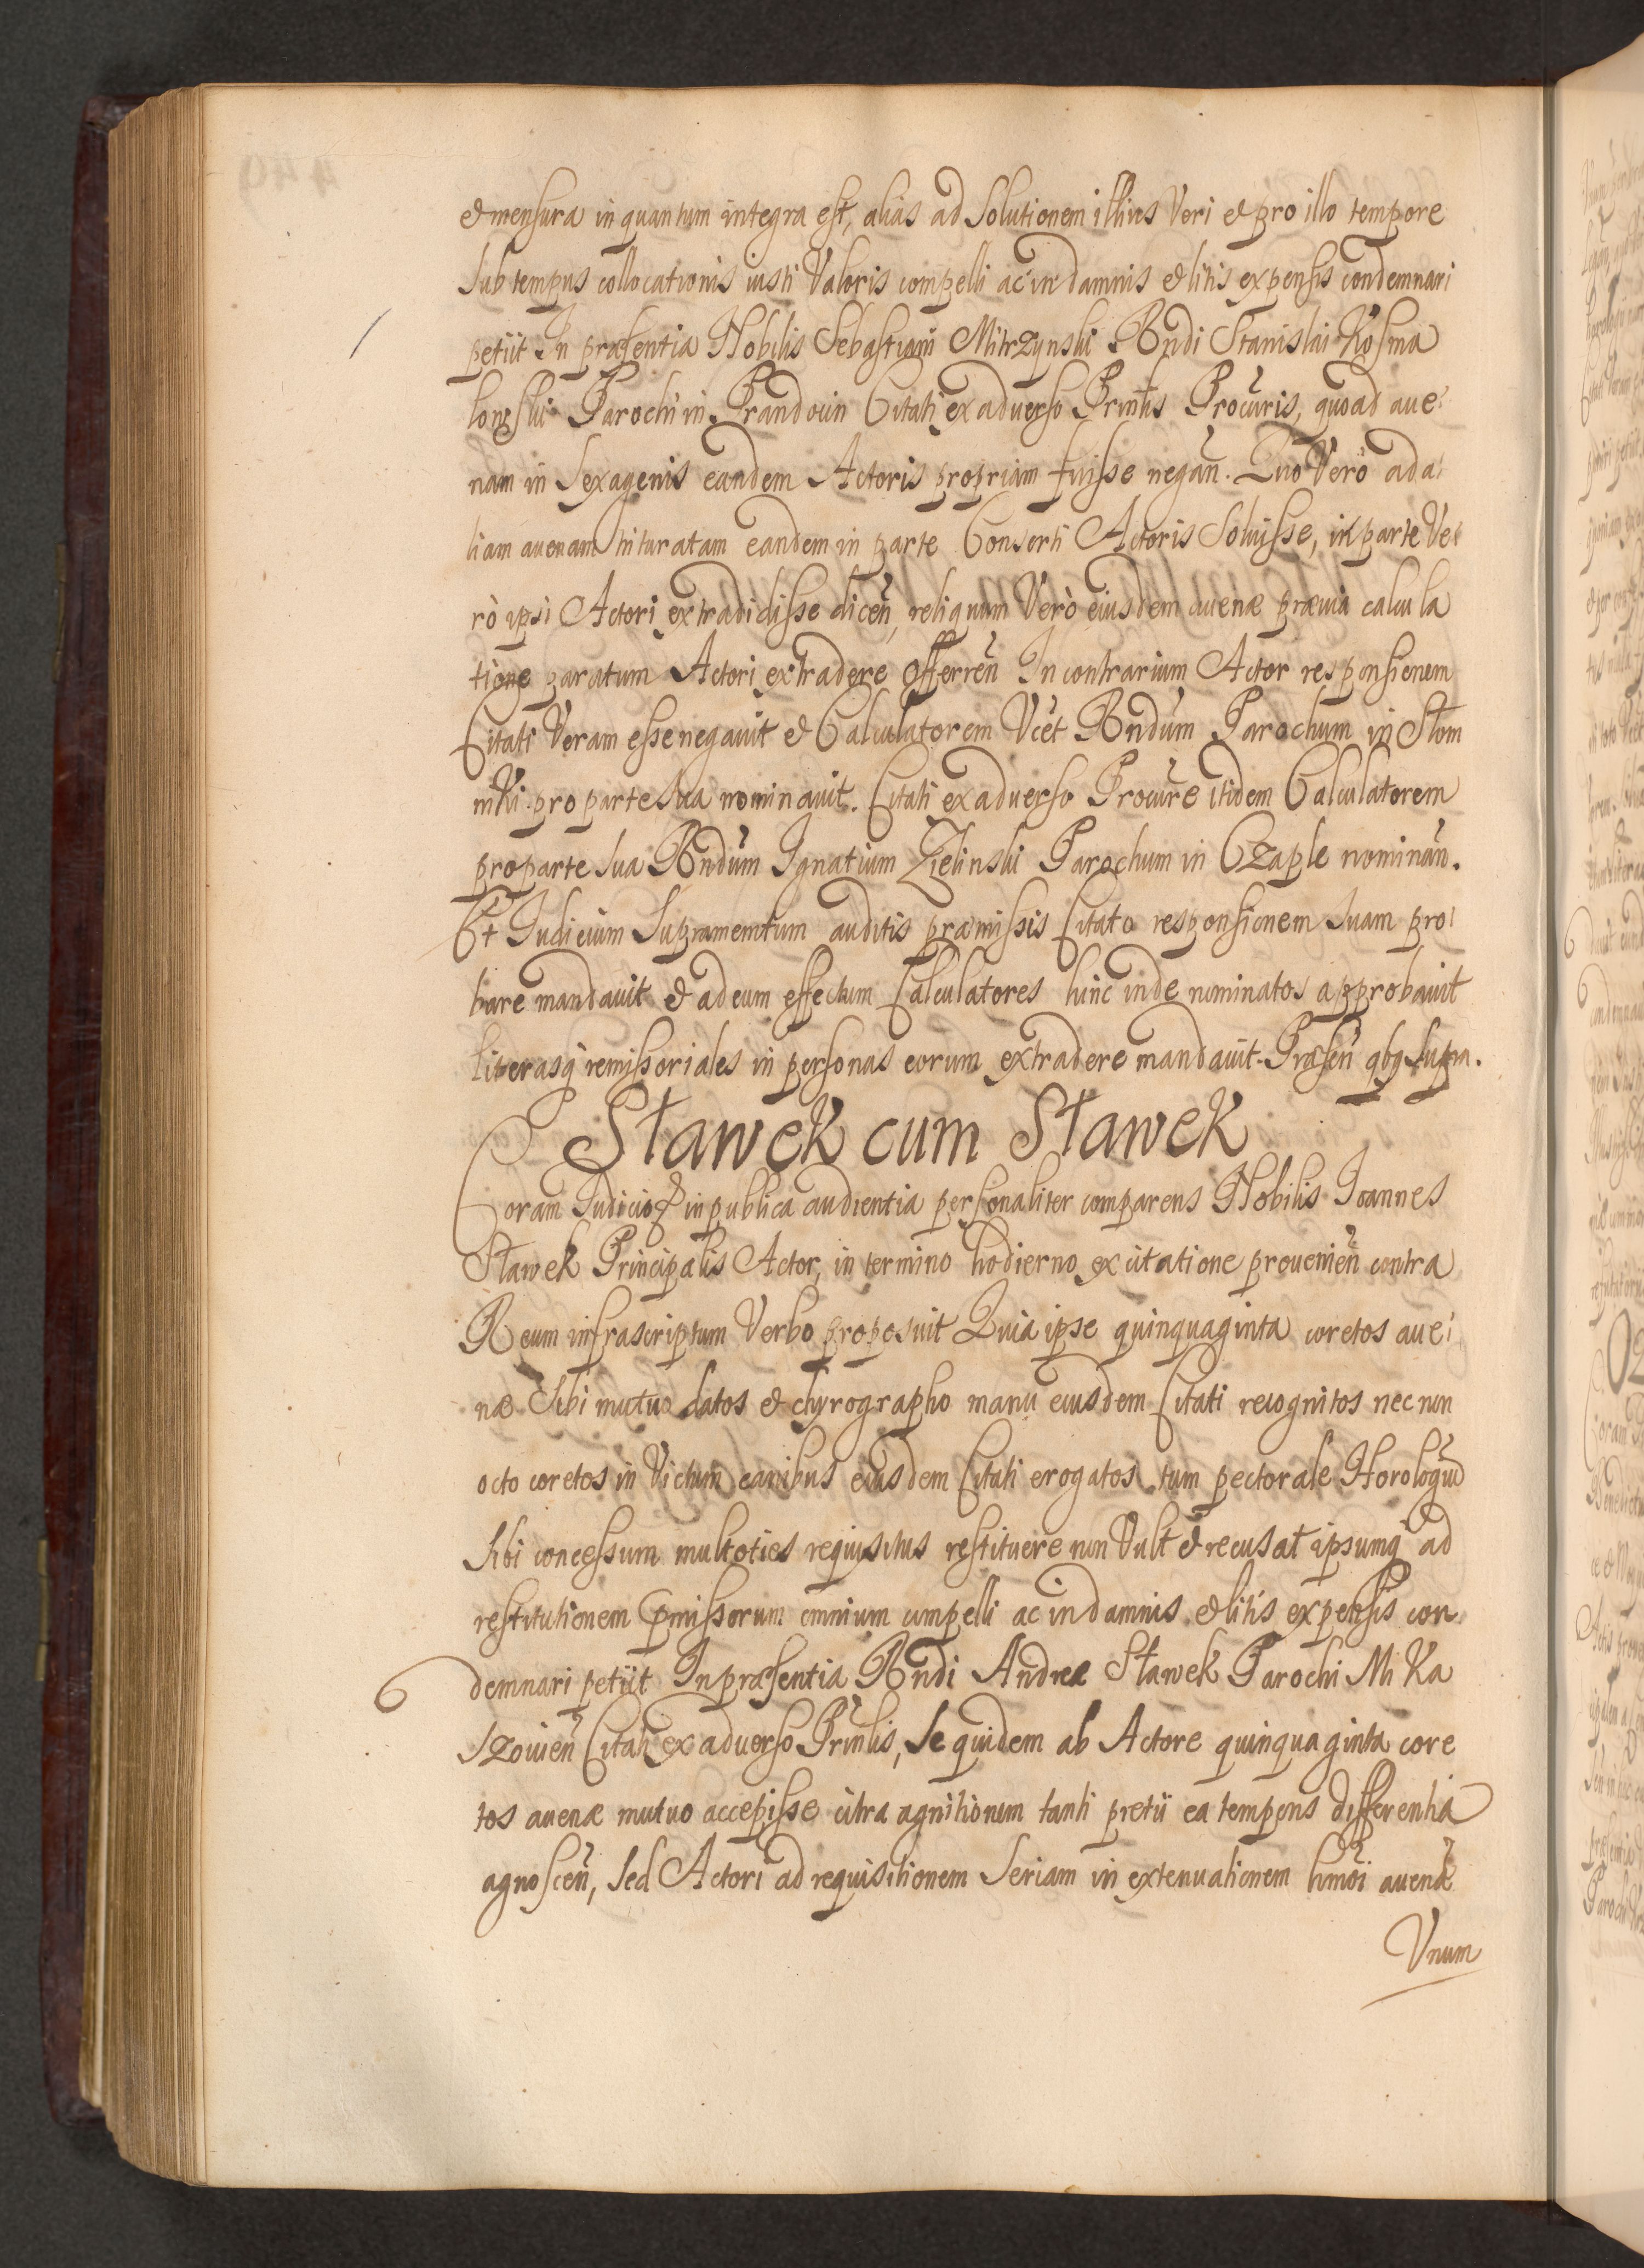 & mensura in quantum integra est, alias ad Solutionem illius Veri & pro illo tempore
Sub tempus collocationis iusti Valoris compelli ac in damnis & litis expensis condemnari
petiit In præsentia Nobilis Sebastiani Mitrzynski Rndi Stanislai Kosma
Parochi in Prandocin Citati ex aduerso Prinlis Procuris, quoad aue
nam in Sexagenis eandem Actoris propriam fuisse negan̄. Quo Verò ad a
liam auenam trituratam eandem in parte Consorti Actoris Soluisse, in parte Ve
rò ipsi Actori extradidisse dicen̄, reliquum Verò eiusdem auenæ præuia calcula
tione paratum Actori extradere offerren̄ In contrarium Actor responsionem
Citati Veram esse negauit & Calculatorem Vcet Rndum Parochum in Słom
niki pro parte sua nominauit. Citati ex aduerso Procure itidem Calculatorem
pro parte sua Rndum Ignatium Zielinski Parochum in Czaple nominan̄.
Et Iudicium Supramemtum auditis præmissis Citato responsionem suam pro
bare mandauit & ad eum effectum Calculatores hinc inde nominatos approbauit
literasq̄ remissoriales in personas eorum extradere mandauit. Præsen̄ qbq supra.
Sławek cum Sławek
Coram Iudicio & in publica audientia personaliter comparens Nobilis Ioannes
Sławek Principalis Actor, in termino hodierno ex citatione prouenien̄ contra
Reum infrascriptum Verbo proposuit Quia ipse quinquaginta coretos aue
næ Sibi mutuo datos & chyrographo manu eiusdem Citati recognitos nec non
octo coretos in Victum canibus eiusdem Citati erogatos tum pectorale Horologiū
Sibi concessum multoties requisitus restituere non Vult & recusat ipsumq̄ ad
restitutionem pmissorum omnium compelli ac in damnis & litis expensis con
demnari petiit In præsentia Rndi Andreæ Sławek Parochi Mi Ka
szouien̄ Citati ex aduerso Prinlis, se quidem ab Actore quinquaginta core
tos auenæ mutuo accepisse citra agnitionem tanti pretii ea temporis differentia
agnoscen̄, sed Actori ad requisitionem Seriam in extenuationem hmōi auenæ
Vnum